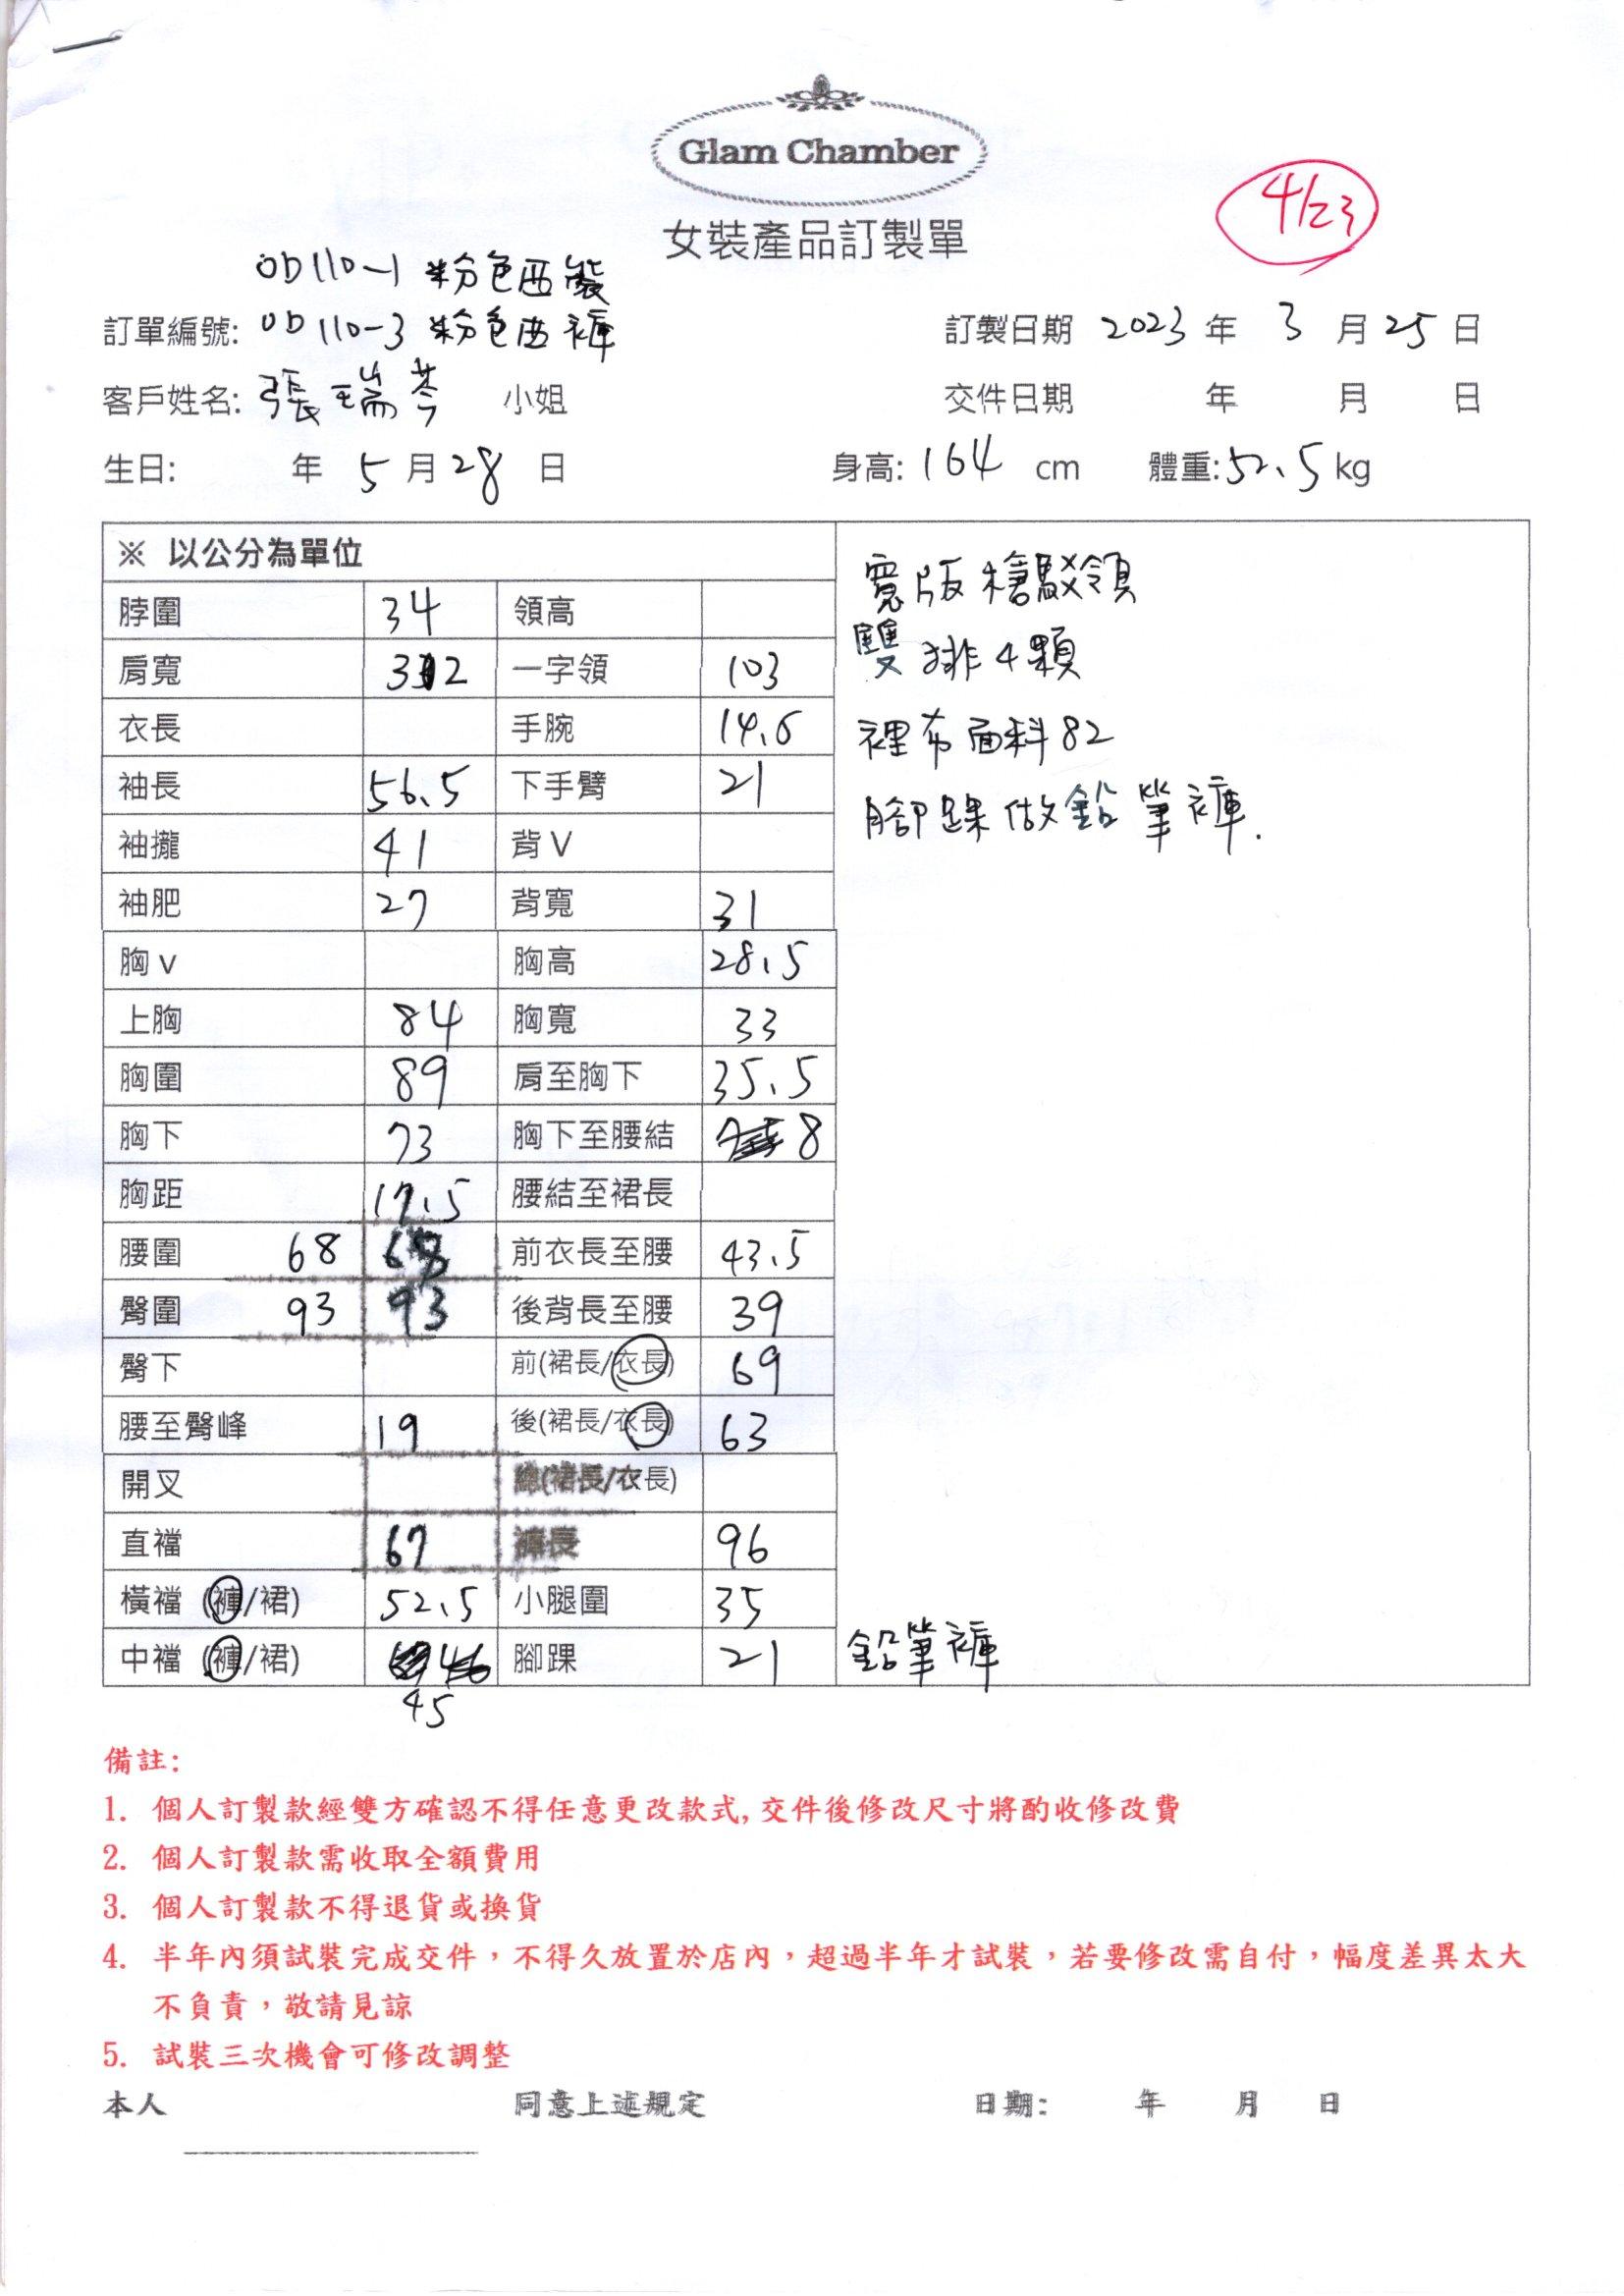 Glam Chamber
4/23
女裝產品訂製單
OD110-1 粉色西裝
訂單編號: OD110-3 粉色西褲 訂製日期 2023 年 3 月 25 日
客戶姓名: 張瑞芩 小姐 交件日期 年 月 日
生日: 年 5 月 28 日 身高: 164 cm 體重: 52.5 kg
※ 以公分為單位
寬版槍駁領
脖圍 34 領高
雙排4顆
肩寬 一字領 103
衣長 手腕 14.6
裡布面料82
袖長 56.5 下手臂 21
腳踝做鉛筆褲.
袖攏 41 背V
袖肥 27 背寬 31
胸v 胸高 28.5
上胸 84 胸寬 33
胸圍 89 肩至胸下 35.5
胸下 73 胸下至腰結 8
胸距 17.5 腰結至裙長
腰圍 68 前衣長至腰 43.5
臀圍 93 93 後背長至腰 39
臀下 前(裙長/衣長) 69
腰至臀峰 19 後(裙長/衣長) 63
開叉 總(裙長/衣長)
直襠 67 褲長 96
橫襠 (褲/裙) 52.5 小腿圍 35
中襠 (褲/裙) 腳踝 21 鉛筆褲
45
備註:
1. 個人訂製款經雙方確認不得任意更改款式,交件後修改尺寸將酌收修改費
2. 個人訂製款需收取全額費用
3. 個人訂製款不得退貨或換貨
4. 半年內須試裝完成交件，不得久放置於店內，超過半年才試裝，若要修改需自付，幅度差異太大
不負責，敬請見諒
5. 試裝三次機會可修改調整
本人 同意上述規定 日期: 年 月 日